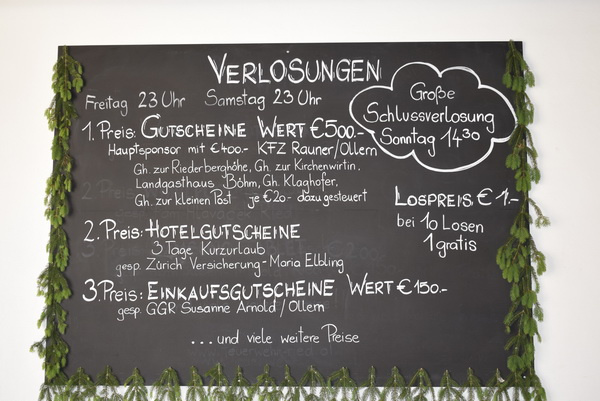 VERLOSUNGEN
Freitag 23 Uhr Samstag 23 Uhr
Große
Schlussverlosung
Sonntag 14 30
1. Preis: GUTSCHEINE WERT €500.-
Hauptsponsor mit €400.- KFZ Rauner/Ollern
Gh. zur Riederberghöhe, Gh. zur Kirchenwirtin,
Landgasthaus Böhm, Gh. Klaghofer,
Gh. zur kleinen Post je €20.- dazugesteuert
LOSPREIS € 1.-
bei 10 Losen
1 gratis
2. Preis: HOTELGUTSCHEINE
3 Tage Kurzurlaub
gesp. Zürich Versicherung - Maria Elbling
3. Preis: EINKAUFSGUTSCHEINE WERT €150.-
gesp. GGR Susanne Arnold/Ollern
...und viele weitere Preise